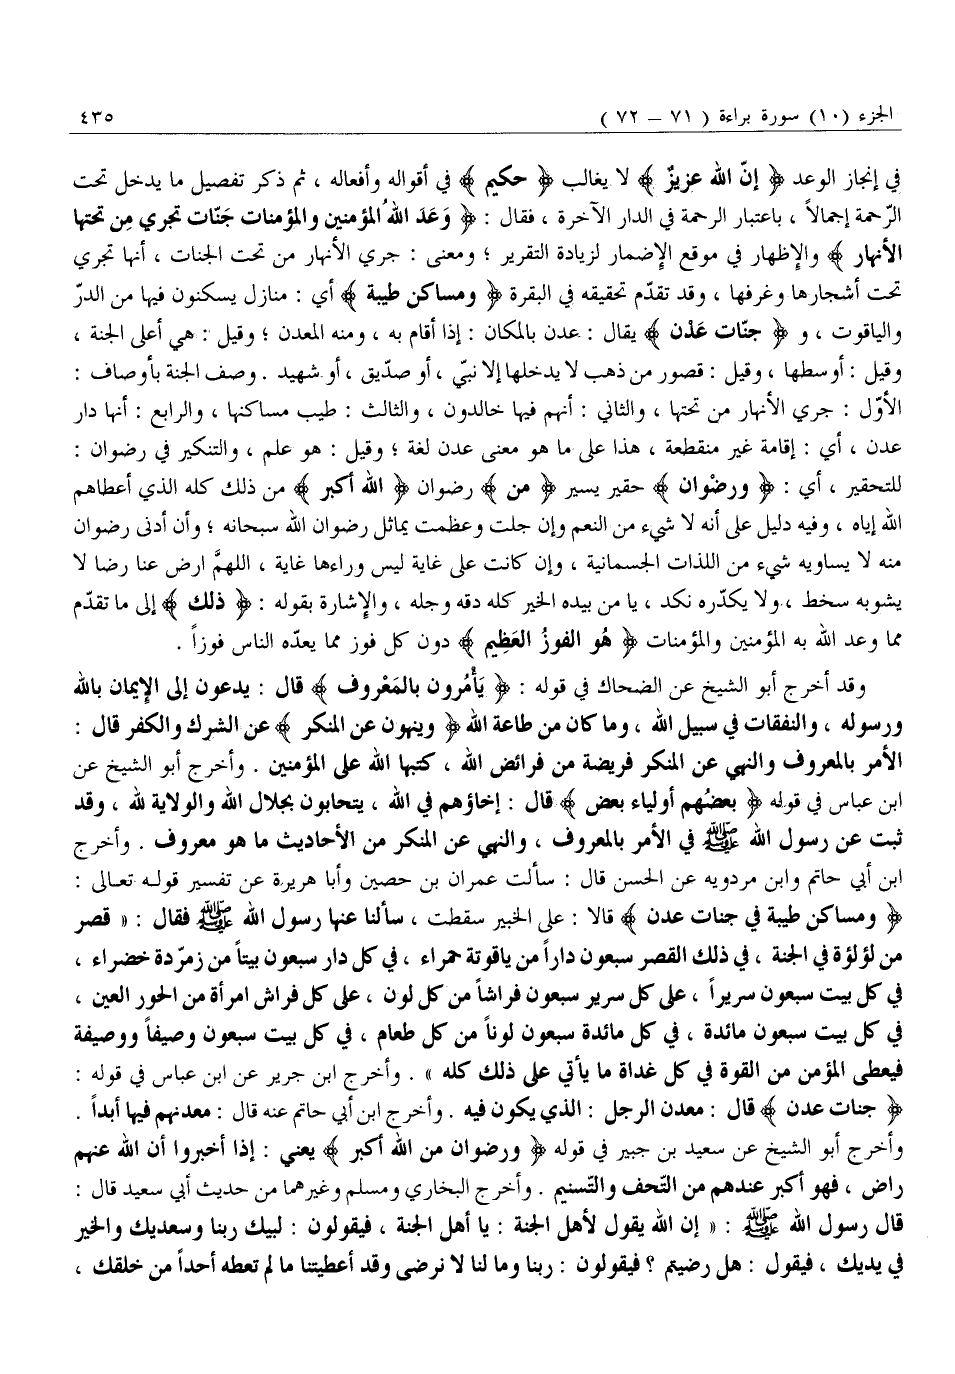 الجزء (١٠) سورة براءة ( ٧١ – ٧٢ ) ٤٣٥
في إنجاز الوعد ﴿ إنّ الله عزيزٌ ﴾ لا يغالب ﴿ حكيم ﴾ في أقواله وأفعاله ، ثم ذكر تفصيل ما يدخل تحت
الرّحمة إجمالاً ، باعتبار الرحمة في الدار الآخرة ، فقال : ﴿ وَعَدَ اللهُ المؤمنين والمؤمنات جَنّات تجري مِن تحتها
الأنهار ﴾ والإظهار في موقع الإضمار لزيادة التقرير ؛ ومعنى : جري الأنهار من تحت الجنات ، أنها تجري
تحت أشجارها وغرفها ، وقد تقدّم تحقيقه في البقرة ﴿ ومساكن طيبة ﴾ أي : منازل يسكنون فيها من الدرّ
والياقوت ، و ﴿ جنّات عَدْن ﴾ يقال : عدن بالمكان : إذا أقام به ، ومنه المعدن ؛ وقيل : هي أعلى الجنة ،
وقيل : أوسطها ، وقيل : قصور من ذهب لا يدخلها إلا نبيّ ، أو صدّيق ، أو شهيد . وصف الجنة بأوصاف :
الأوّل : جري الأنهار من تحتها ، والثاني : أنهم فيها خالدون ، والثالث : طيب مساكنها ، والرابع : أنها دار
عدن ، أي : إقامة غير منقطعة ، هذا على ما هو معنى عدن لغة ؛ وقيل : هو علم ، والتنكير في رضوان :
للتحقير ، أي : ﴿ ورضْوان ﴾ حقير يسير ﴿ من ﴾ رضوان ﴿ الله أكبر ﴾ من ذلك كله الذي أعطاهم
الله إياه ، وفيه دليل على أنه لا شيء من النعم وإن جلت وعظمت يماثل رضوان الله سبحانه ؛ وأن أدنى رضوان
منه لا يساويه شيء من اللذات الجسمانية ، وإن كانت على غاية ليس وراءها غاية ، اللهمَّ ارض عنا رضا لا
يشوبه سخط ، ولا يكدّره نكد ، يا من بيده الخير كله دقه وجله ، والإشارة بقوله : ﴿ ذلك ﴾ إلى ما تقدّم
مما وعد الله به المؤمنين والمؤمنات ﴿ هُو الفوزُ العَظِيم ﴾ دون كل فوز مما يعدّه الناس فوزاً .
وقد أخرج أبو الشيخ عن الضحاك في قوله : ﴿ يَأْمُرون بالمَعْروف ﴾ قال : يدعون إلى الإيمان بالله
ورسوله ، والنفقات في سبيل الله ، وما كان من طاعة الله ﴿ وينهون عن المنكر ﴾ عن الشرك والكفر قال :
الأمر بالمعروف والنهي عن المنكر فريضة من فرائض الله ، كتبها الله على المؤمنين . وأخرج أبو الشيخ عن
ابن عباس في قوله ﴿ بعضُهم أولياء بعض ﴾ قال : إخاؤهم في الله ، يتحابون بجلال الله والولاية لله ، وقد
ثبت عن رسول الله ﷺ في الأمر بالمعروف ، والنهي عن المنكر من الأحاديث ما هو معروف . وأخرج
ابن أبي حاتم وابن مردويه عن الحسن قال : سألت عمران بن حصين وأبا هريرة عن تفسير قوله تعالى :
﴿ ومساكن طيبة في جنات عدن ﴾ قالا : على الخبير سقطت ، سألنا عنها رسول الله ﷺ فقال : « قصر
من لؤلؤة في الجنة ، في ذلك القصر سبعون داراً من ياقوتة حمراء ، في كل دار سبعون بيتاً من زمرّدة خضراء ،
في كل بيت سبعون سريراً ، على كل سرير سبعون فراشاً من كل لون ، على كل فراش امرأة من الحور العين ،
في كل بيت سبعون مائدة ، في كل مائدة سبعون لوناً من كل طعام ، في كل بيت سبعون وصيفاً ووصيفة
فيعطى المؤمن من القوة في كل غداة ما يأتي على ذلك كله » . وأخرج ابن جرير عن ابن عباس في قوله :
﴿ جنات عدن ﴾ قال : معدن الرجل : الذي يكون فيه . وأخرج ابن أبي حاتم عنه قال : معدنهم فيها أبداً .
وأخرج أبو الشيخ عن سعيد بن جبير في قوله ﴿ ورضوان من الله أكبر ﴾ يعني : إذا أخبروا أن الله عنهم
راض ، فهو أكبر عندهم من التّحف والتّسنيم . وأخرج البخاري ومسلم وغيرهما من حديث أبي سعيد قال :
قال رسول الله ﷺ : « إن الله يقول لأهل الجنة : يا أهل الجنة ، فيقولون : لبيك ربنا وسعديك والخير
في يديك ، فيقول : هل رضيتم ؟ فيقولون : ربنا وما لنا لا نرضى وقد أعطيتنا ما لم تعطه أحداً من خلقك ،